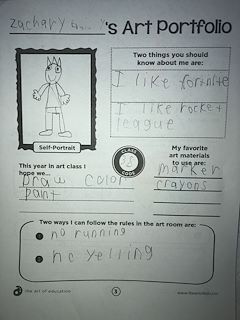 zachary 's Art Portfolio
Two things you should
know about me are:
I like fortnite
I like rocket
league
Self-Portrait
This year in art class I
hope we...
Draw color
pant
CLASS
CODE
My favorite
art materials
to use are:
marker
crayons
Two ways I can follow the rules in the art room are:
no running
no yelling
the art of education
3